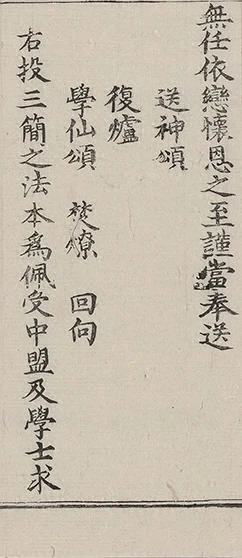 無任依戀懷恩之至謹當奉送
送神頌
復爐
學仙頌 焚燎 回向
右投三簡之法本為佩受中盟及學士求